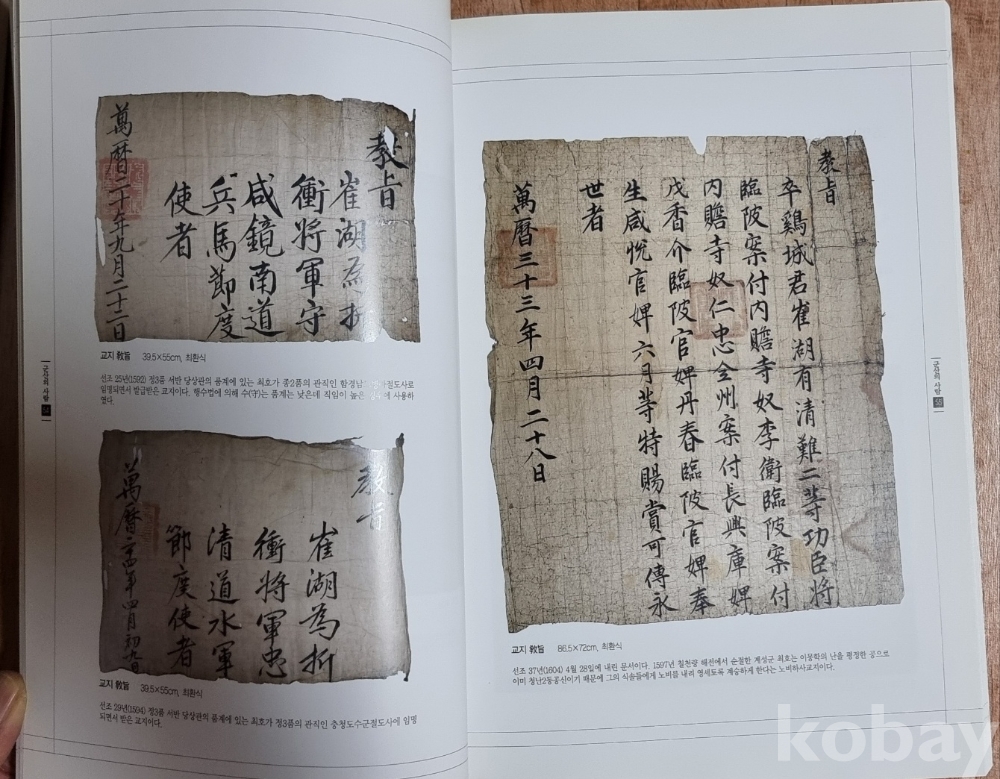 敎旨
崔湖為折
衝將軍守
咸鏡南道
兵馬節度
使者
萬曆二十年九月二十二日
교지 敎旨 39.5×55cm, 최환식
선조 25년(1592) 정3품 서반 당상관의 품계에 있는 최호가 종2품의 관직인 함경남 절도사로
임명되면서 발급받은 교지이다. 행수법에 의해 수(守)는 품계는 낮은데 직임이 높은 에 사용하
였다.
敎旨
崔湖為折
衝將軍忠
清道水軍
節度使者
萬曆 年四月初九日
교지 敎旨 39.5×55cm, 최환식
선조 29년(1594) 정3품 서반 당상관의 품계에 있는 최호가 정3품의 관직인 충청도수군절도사에 임명
되면서 받은 교지이다.
군산의 사람
敎旨
卒鷄城君崔湖有清難二等功臣將
臨陂案付內贍寺奴李衛臨陂案付
內贍寺奴仁忠全州案付長興庫婢
戊香介臨陂官婢丹春臨陂官婢奉
生咸悅官婢六月等特賜賞可傳永
世者
萬曆三十三年四月二十八日
교지 敎旨 86.5×72cm, 최환식
선조 37년(1604) 4월 28일에 내린 문서이다. 1597년 칠천량 해전에서 순절한 계성군 최호는 이몽학의 난을 평정한 공으로
이미 청난2등공신이기 때문에 그의 식솔들에게 노비를 내려 영세토록 계승하게 한다는 노비하사교지이다.
군산의 사람
kobay